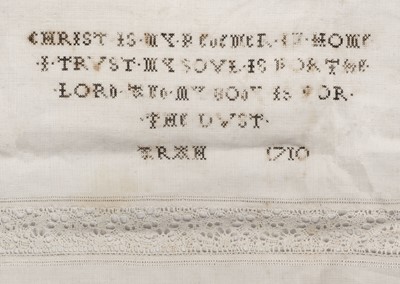 CHRIST · IS · MY · REDEMER · IN · HOME
· I · TRVST · MY SOVL · IS · FOR THE
· LORD · AND · MY BODY IS FOR ·
· THE DVST ·
1710